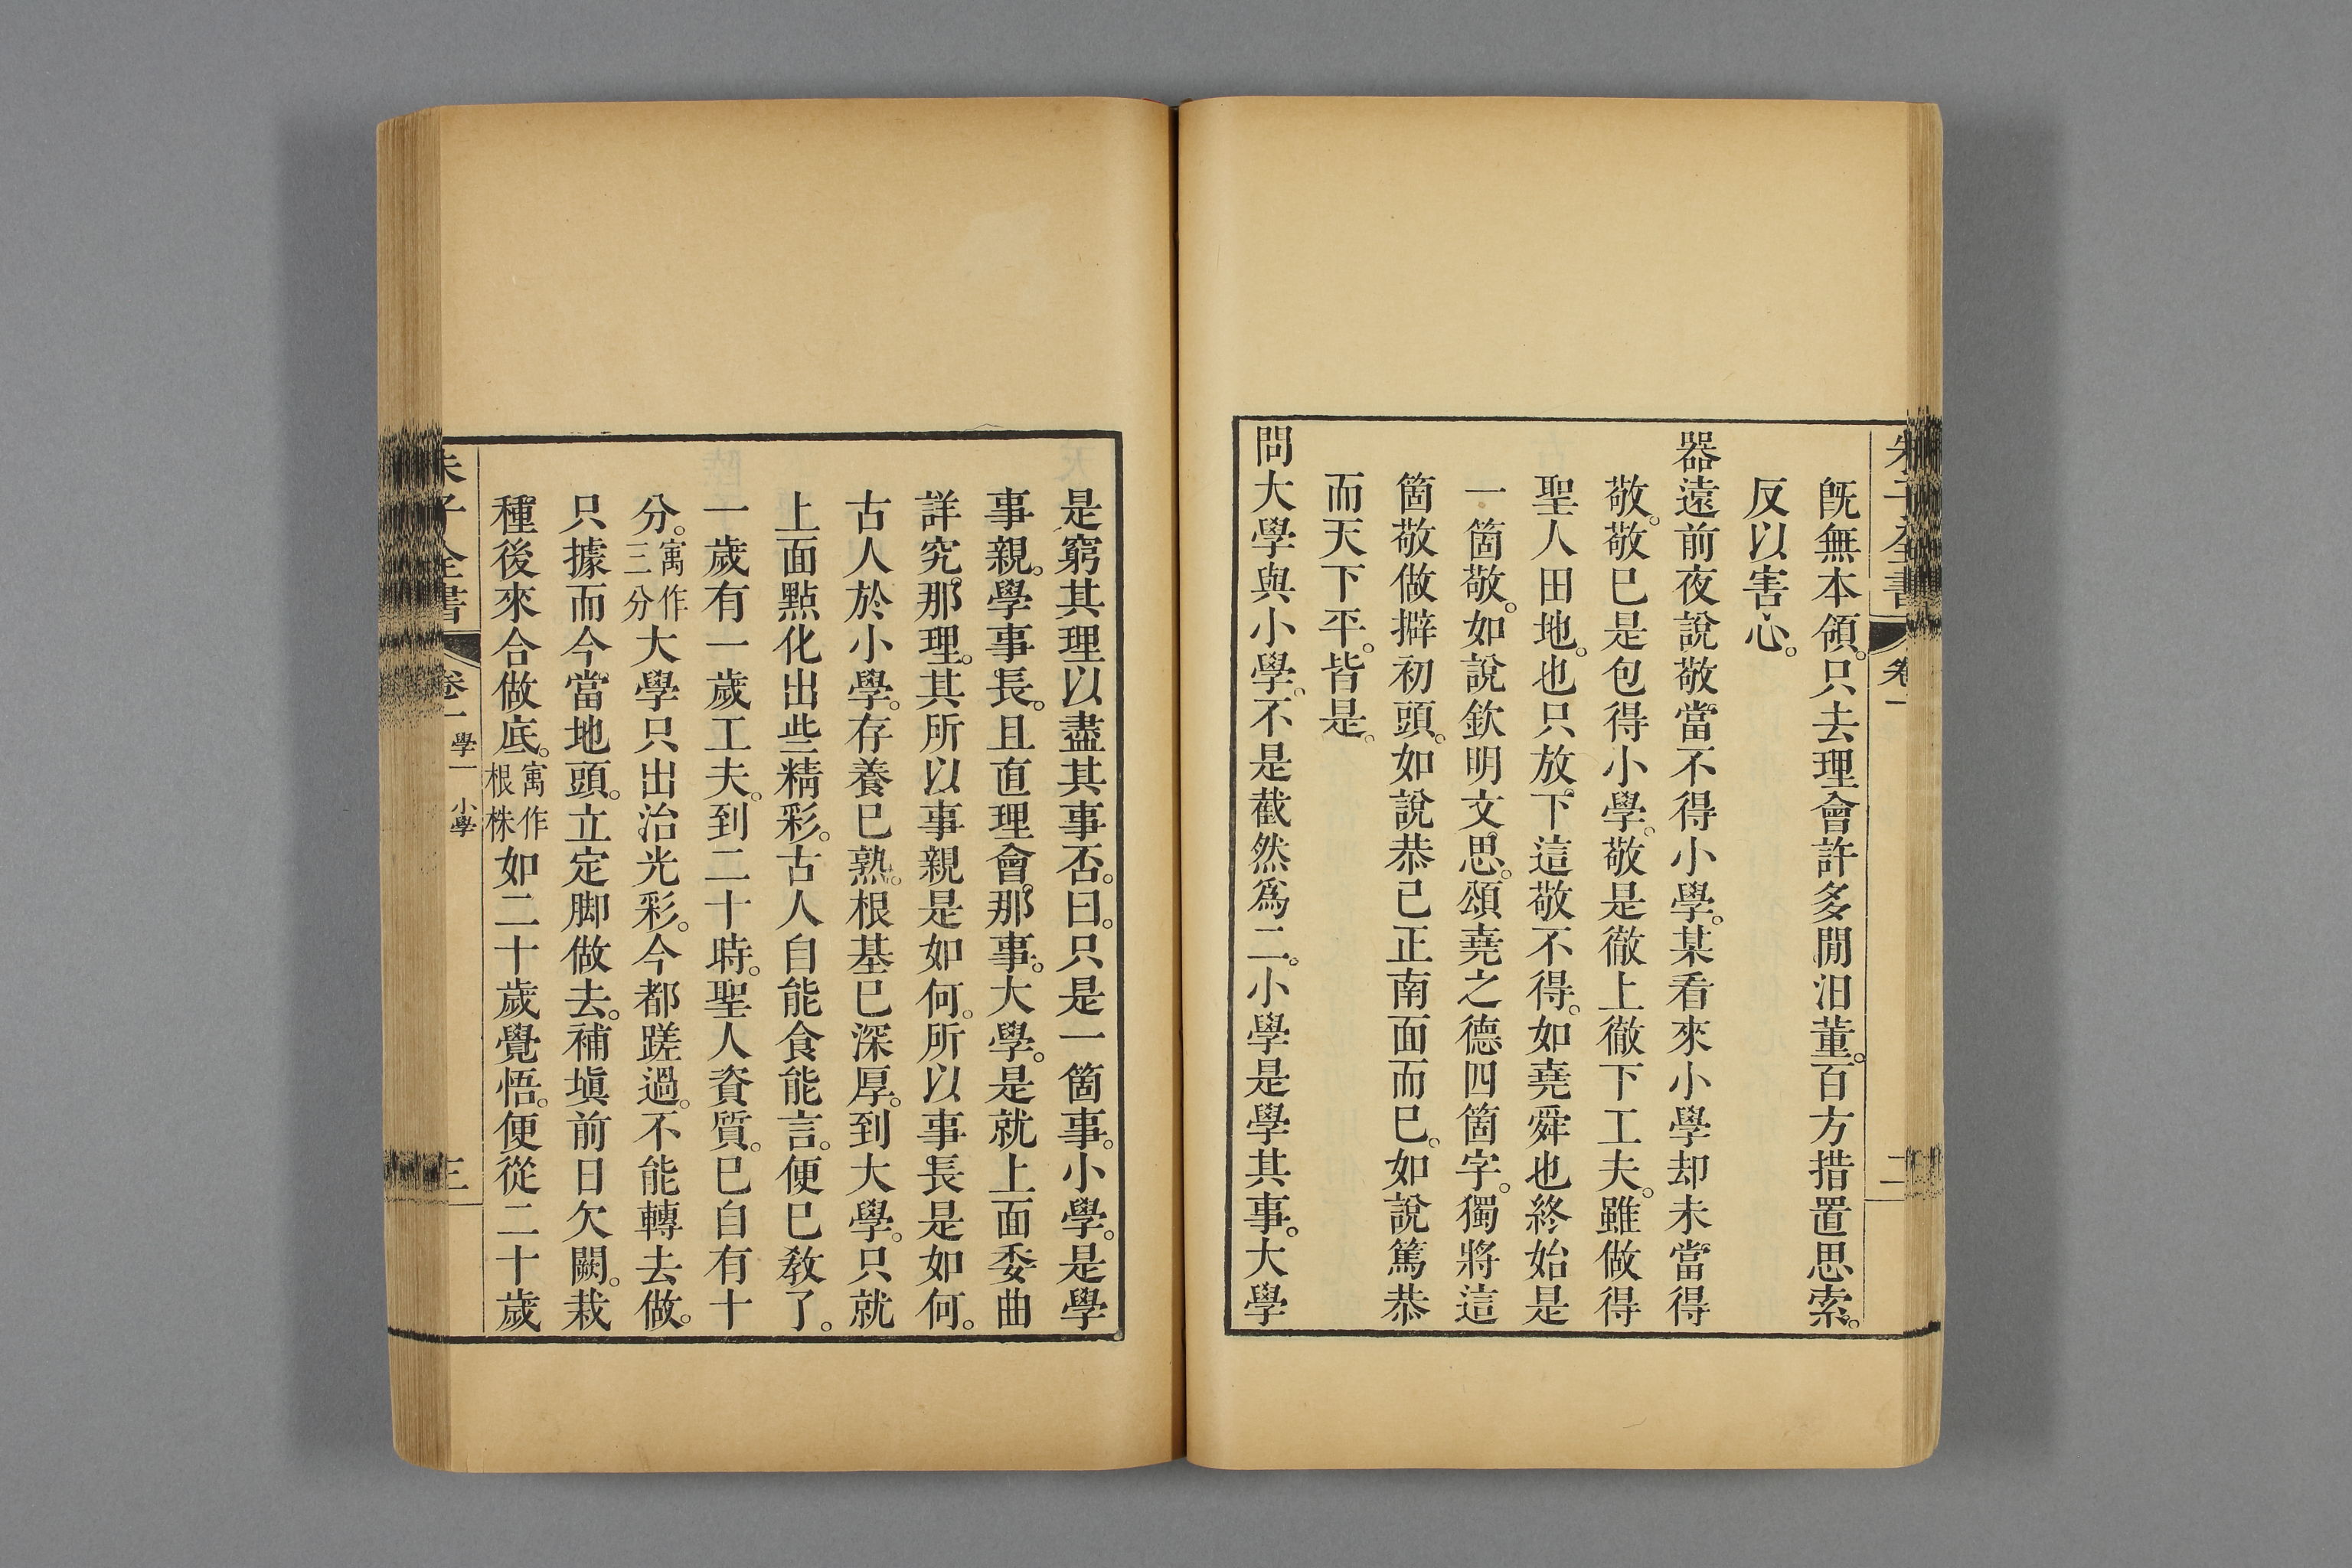 朱子全書 卷一 二
既無本領。只去理會許多閒汨董。百方措置思索。
反以害心。
器遠前夜說敬當不得小學。某看來小學却未當得
敬。敬已是包得小學。敬是徹上徹下工夫。雖做得
聖人田地。也只放下這敬不得。如堯舜也終始是
一箇敬。如說欽明文思。頌堯之德四箇字。獨將這
箇敬做擗初頭。如說恭己正南面而已。如說篤恭
而天下平。皆是。
問大學與小學。不是截然爲二。小學是學其事。大學
是窮其理以盡其事否。曰。只是一箇事。小學。是學
事親。學事長。且直理會那事。大學。是就上面委曲
詳究那理。其所以事親是如何。所以事長是如何。
古人於小學。存養已熟。根基已深厚。到大學。只就
上面點化出些精彩。古人自能食能言。便已教了。
一歲有一歲工夫。到二十時。聖人資質。已自有十
分。寓作三分大學只出治光彩。今都蹉過。不能轉去做。
只據而今當地頭。立定脚做去。補塡前日欠闕。栽
種後來合做底。寓作根株如二十歲覺悟。便從二十歲
朱子全書 卷一 學一 小學 三